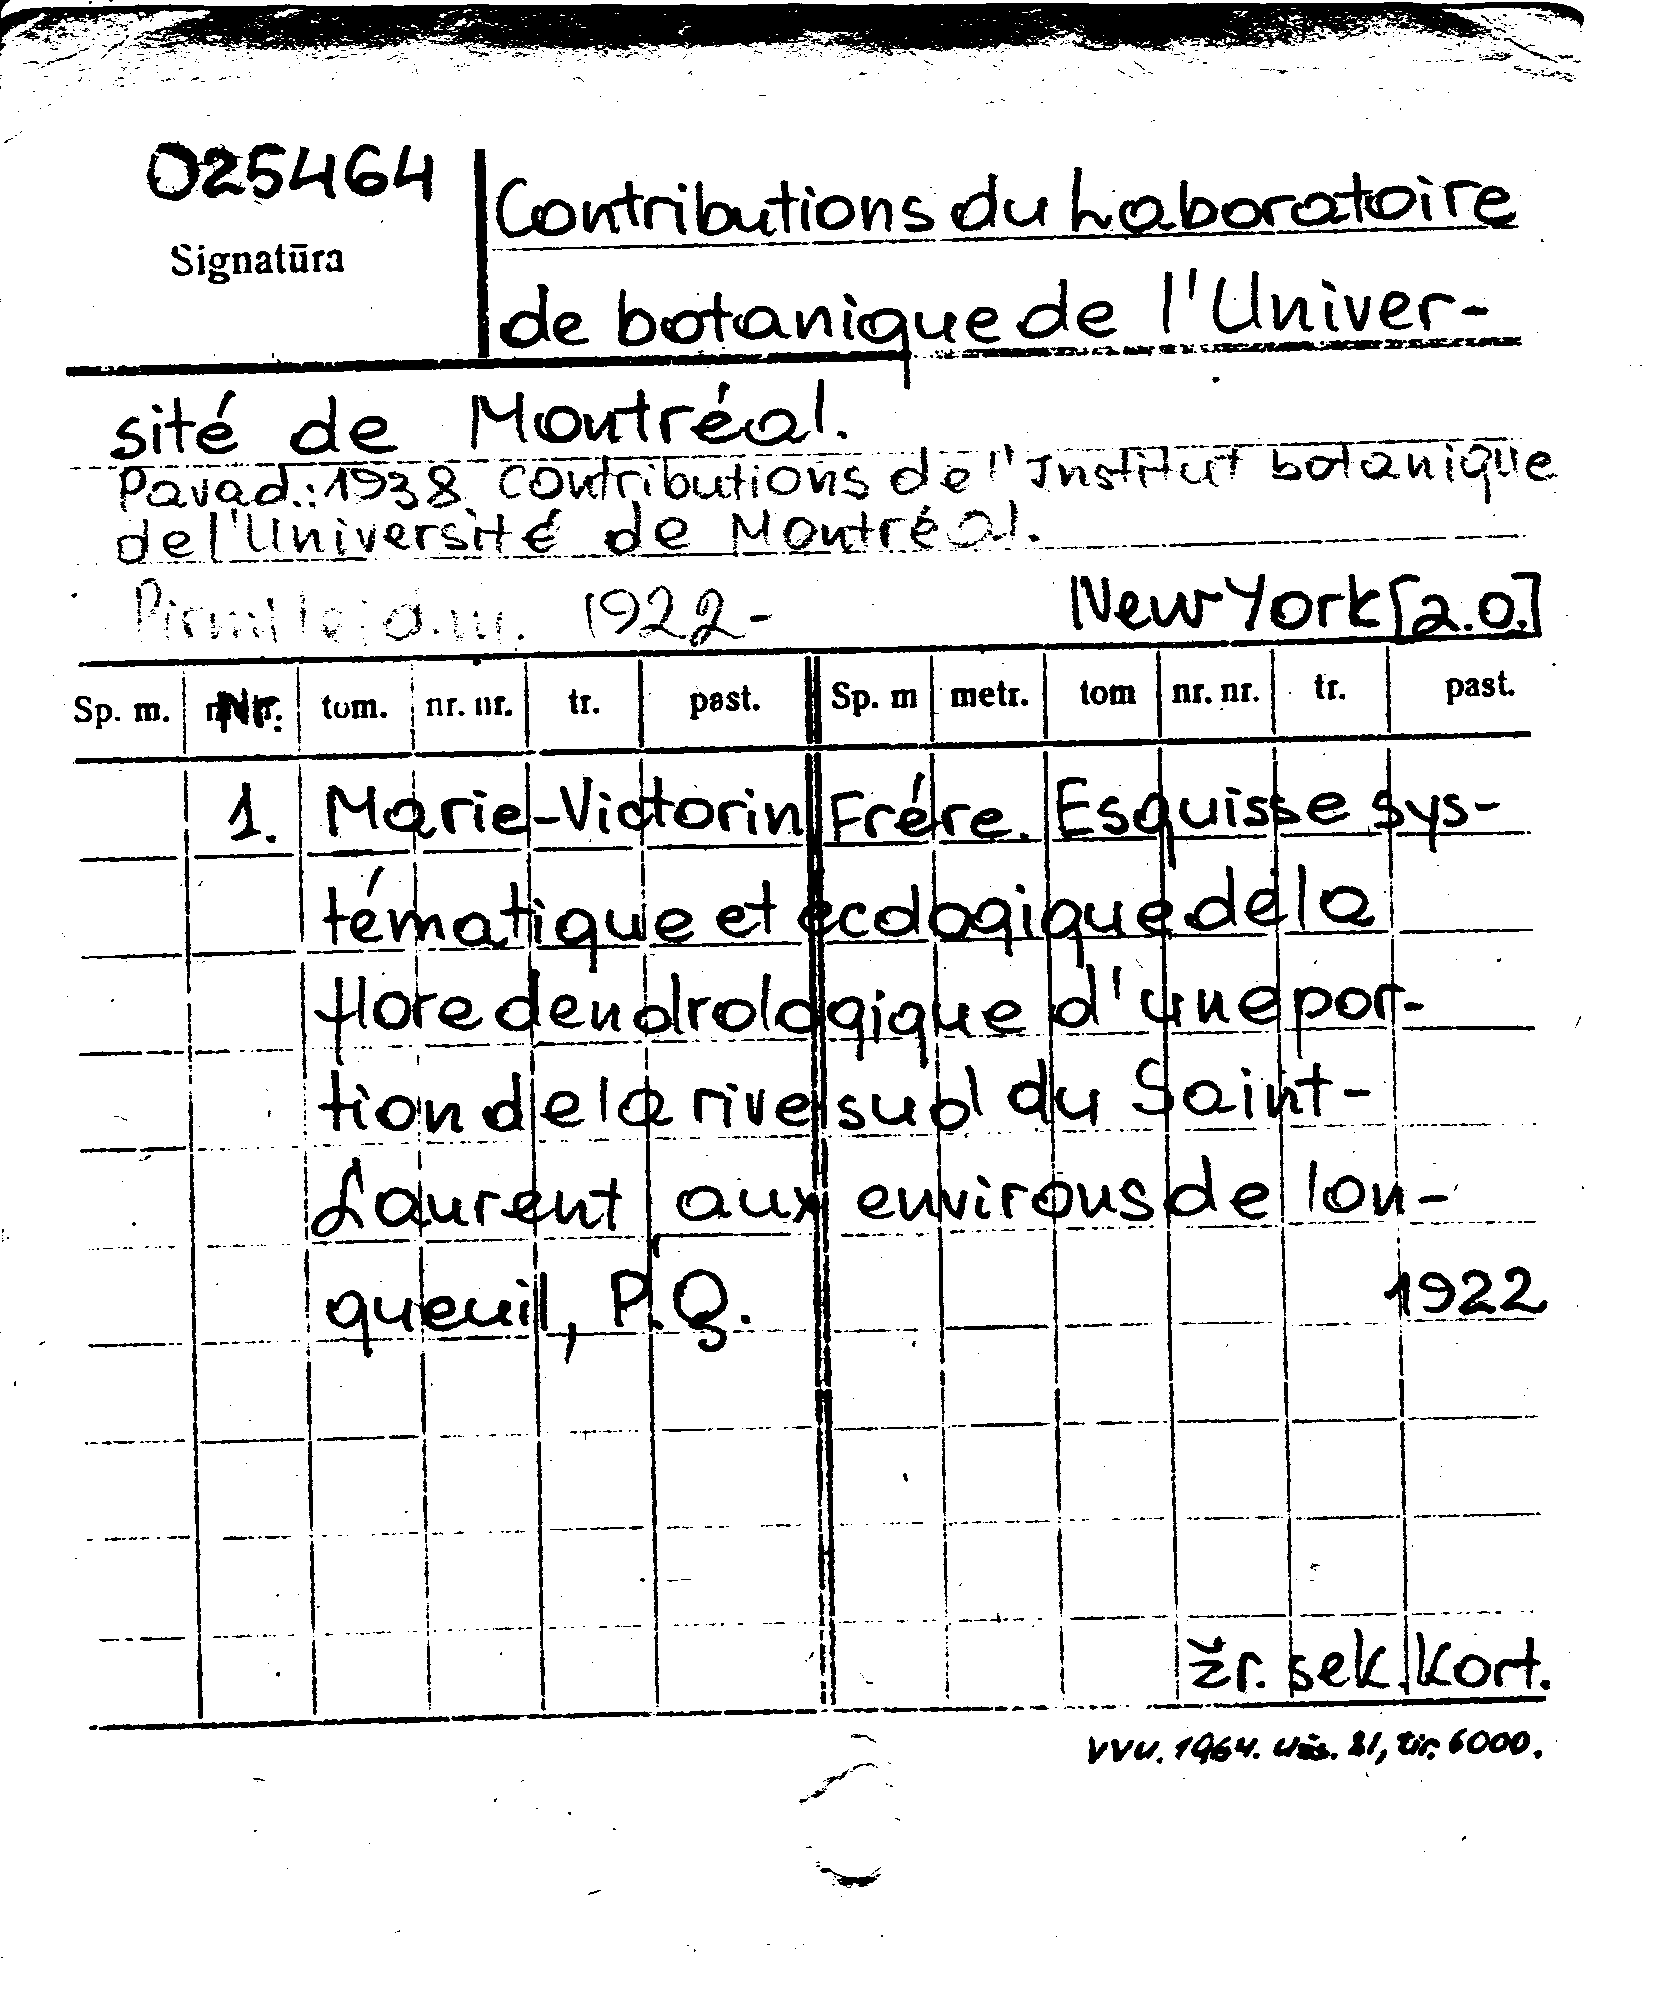 025464
Signatūra
Contributions du Laboratoire
de botanique de l'Univer-
sité de Montréal.
Pavad.: 1938 Contributions de l'Institut botanique
de l'Université de Montréal.
Pirmi leid. m. 1922- New York [2.0.]
Sp. m. Nr. tom. nr. nr. tr. past. Sp. m metr. tom nr. nr. tr. past.
1. Marie-Victorin Frére. Esquisse sys-
tématique et ecologique de la
flore dendrologique d'une por-
tion de la rive sud du Saint-
Laurent aux environs de lon-
queuil, P.Q. 1922
žr. sek. kort.
VVU. 1964. Užs. 81, tir. 6000.